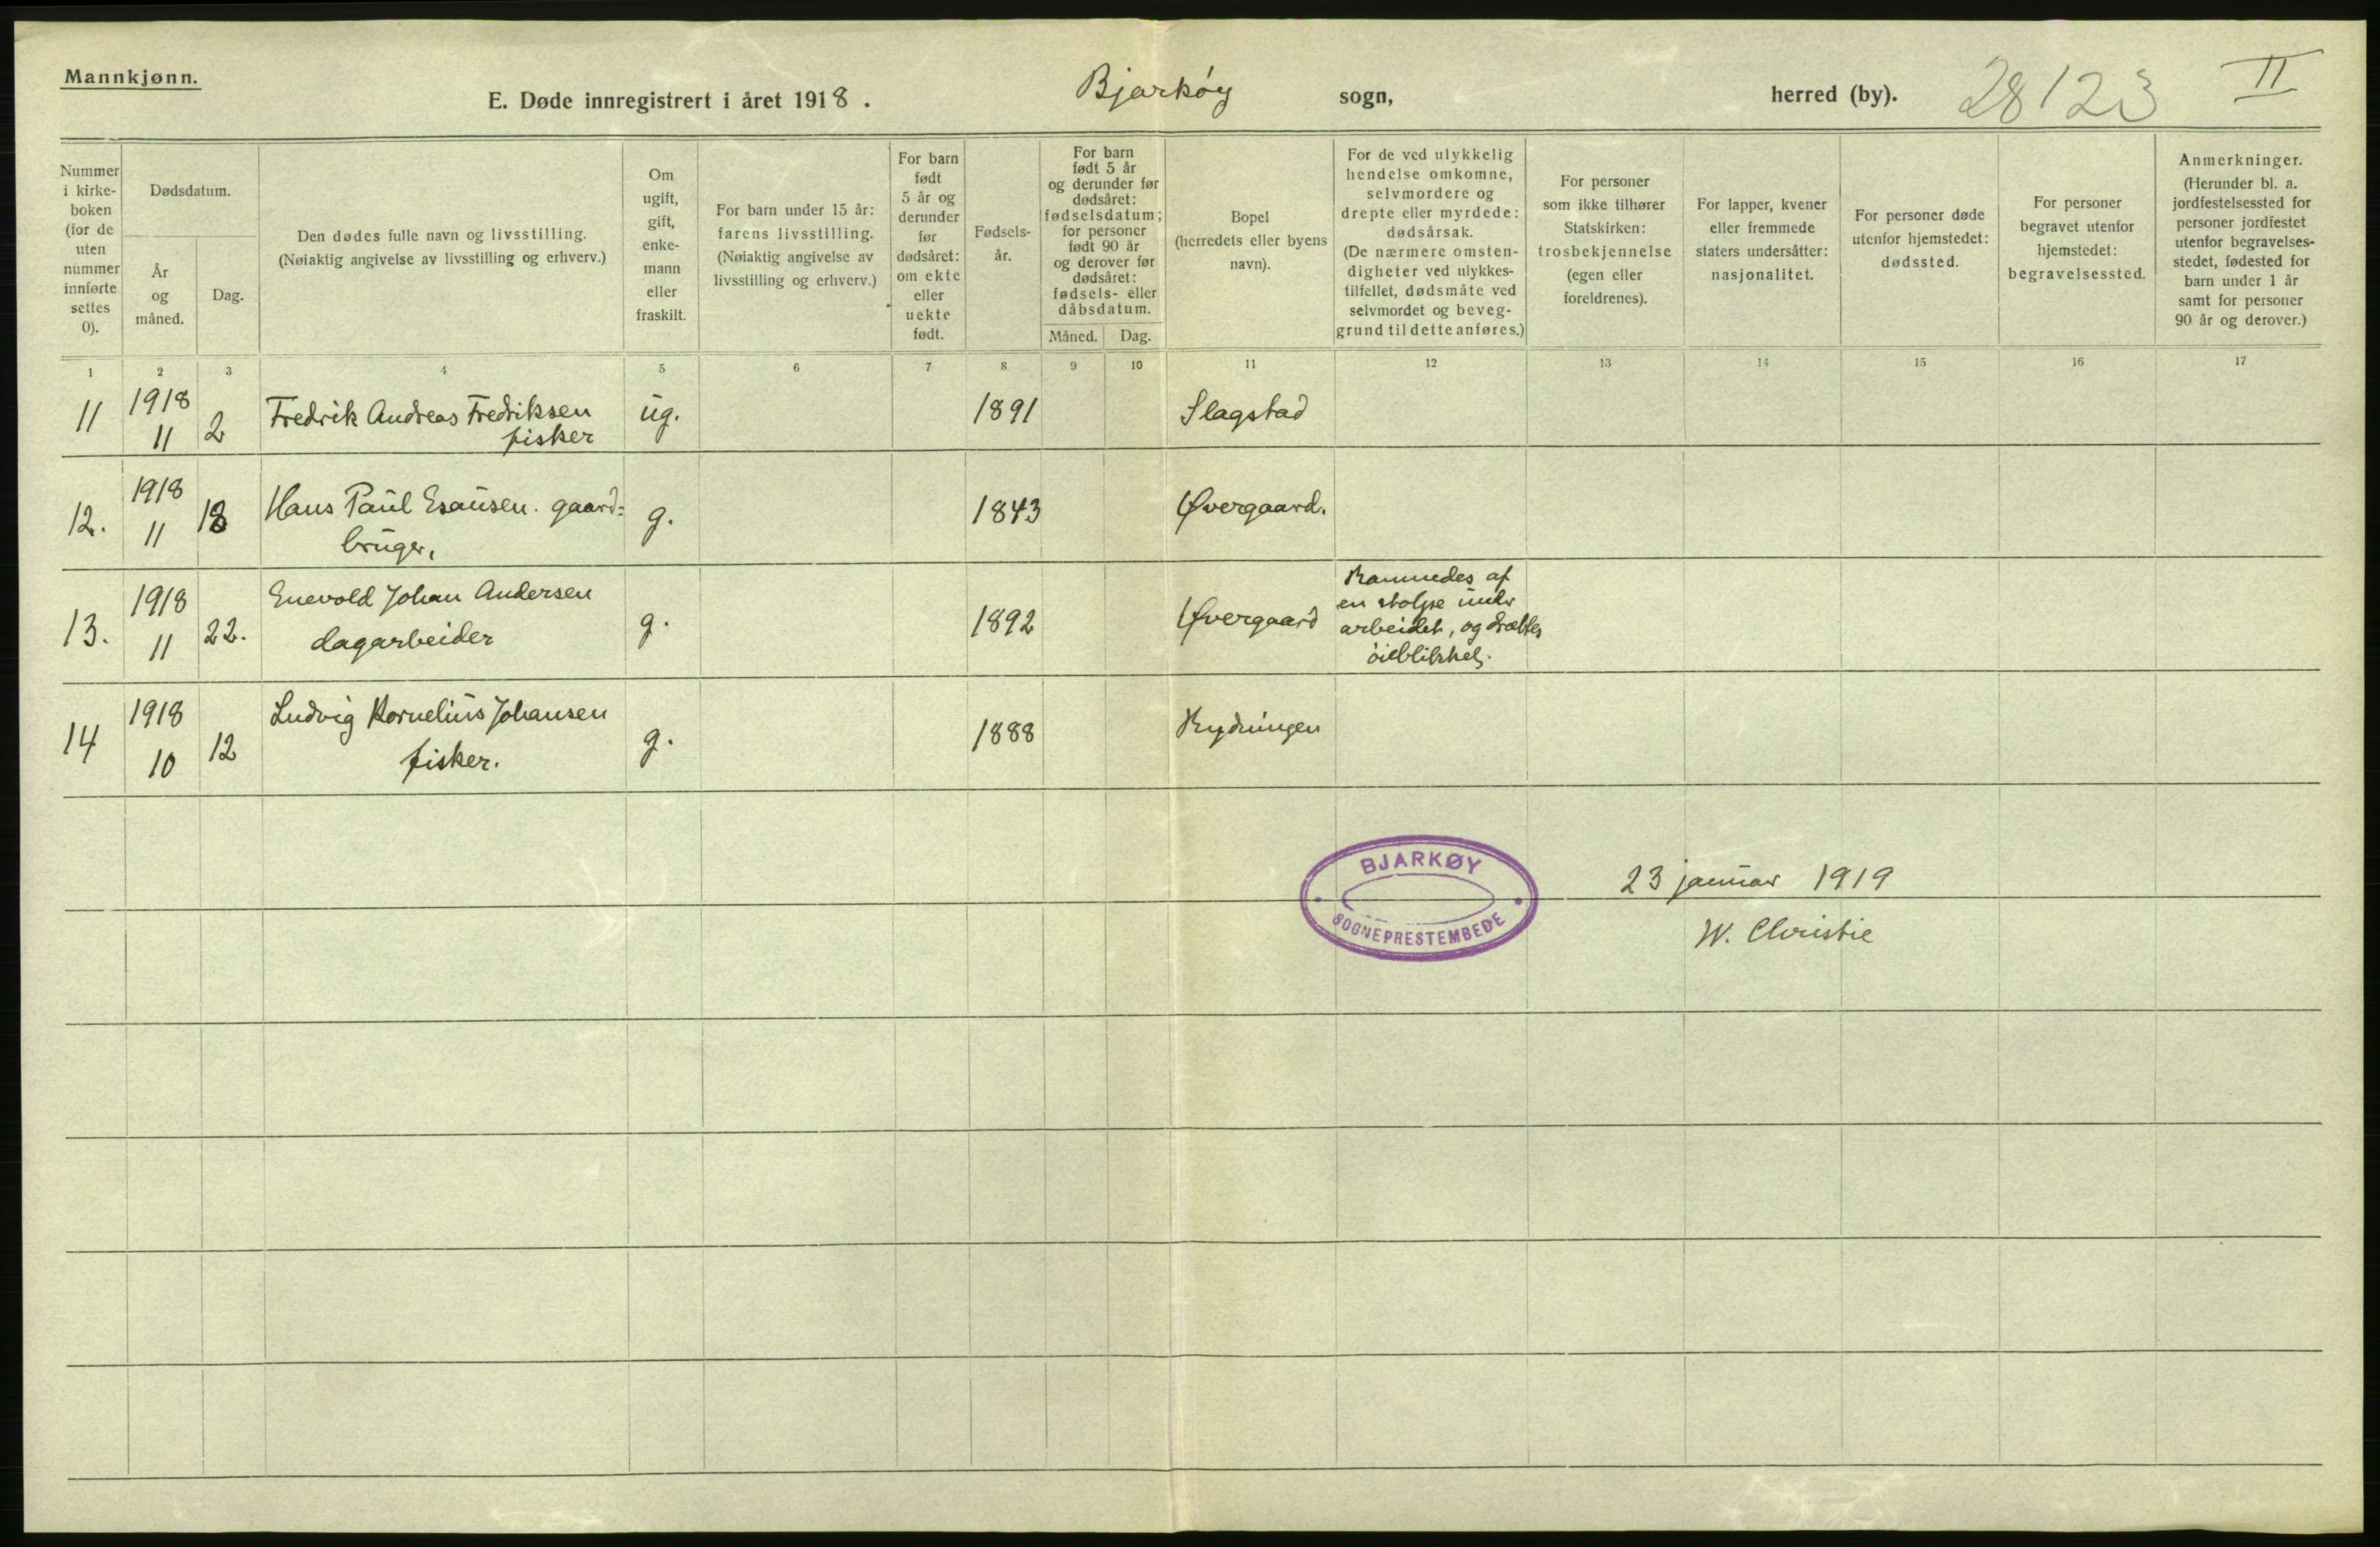 Mannkjønn.
E. Døde innregistrert i året 1918. Bjarkóy sogn, herred (by). 28123 II
Nummer
i kirke-
boken
(for de
uten
nummer
innførte
settes
0).
Dødsdatum.
År
og
måned.
Dag.
Den dødes fulle navn og livsstilling.
(Nøiaktig angivelse av livsstilling og erhverv.)
Om
ugift,
gift,
enke-
mann
eller
fraskilt.
For barn under 15 år:
farens livsstilling.
(Nøiaktig angivelse av
livsstilling og erhverv.)
For barn
født
5 år og
derunder
før
dødsåret:
om ekte
eller
uekte
født.
Fødsels-
år.
For barn
født 5 år
og derunder før
dødsåret:
fødselsdatum;
for personer
født 90 år
og derover før
dødsåret:
fødsels- eller
dåbsdatum.
Måned. Dag.
Bopel
(herredets eller byens
navn).
For de ved ulykkelig
hendelse omkomne,
selvmordere og
drepte eller myrdede:
dødsårsak.
(De nærmere omsten-
digheter ved ulykkes-
tilfellet, dødsmåte ved
selvmordet og beveg-
grund til dette anføres.)
For personer
som ikke tilhører
Statskirken:
trosbekjennelse
(egen eller
foreldrenes).
For lapper, kvener
eller fremmede
staters undersåtter:
nasjonalitet.
For personer døde
utenfor hjemstedet:
dødssted.
For personer
begravet utenfor
hjemstedet:
begravelsessted.
Anmerkninger.
(Herunder bl. a.
jordfestelsessted for
personer jordfestet
utenfor begravelses-
stedet, fødested for
barn under 1 år
samt for personer
90 år og derover.)
1 2 3 4 5 6 7 8 9 10 11 12 13 14 15 16 17
11 1918 11 2 Fredrik Andreas Fredriksen ug. 1891 Slagstad
fisker
12. 1918 11 18 Hans Paul Esausen. gaard= g. 1843 Øvergaard.
bruger,
13. 1918 11 22. Enevold Johan Andersen g. 1892 Øvergaard
dagarbeider
Rammedes af
en stolpe under
arbeidet, og dræbtes
öieblikkel.
14 1918 10 12 Ludvig Kornelius Johansen g. 1888 Rydningen
fisker.
BJARKØY
SOGNEPRESTEMBEDE
23 januar 1919
W. Christie